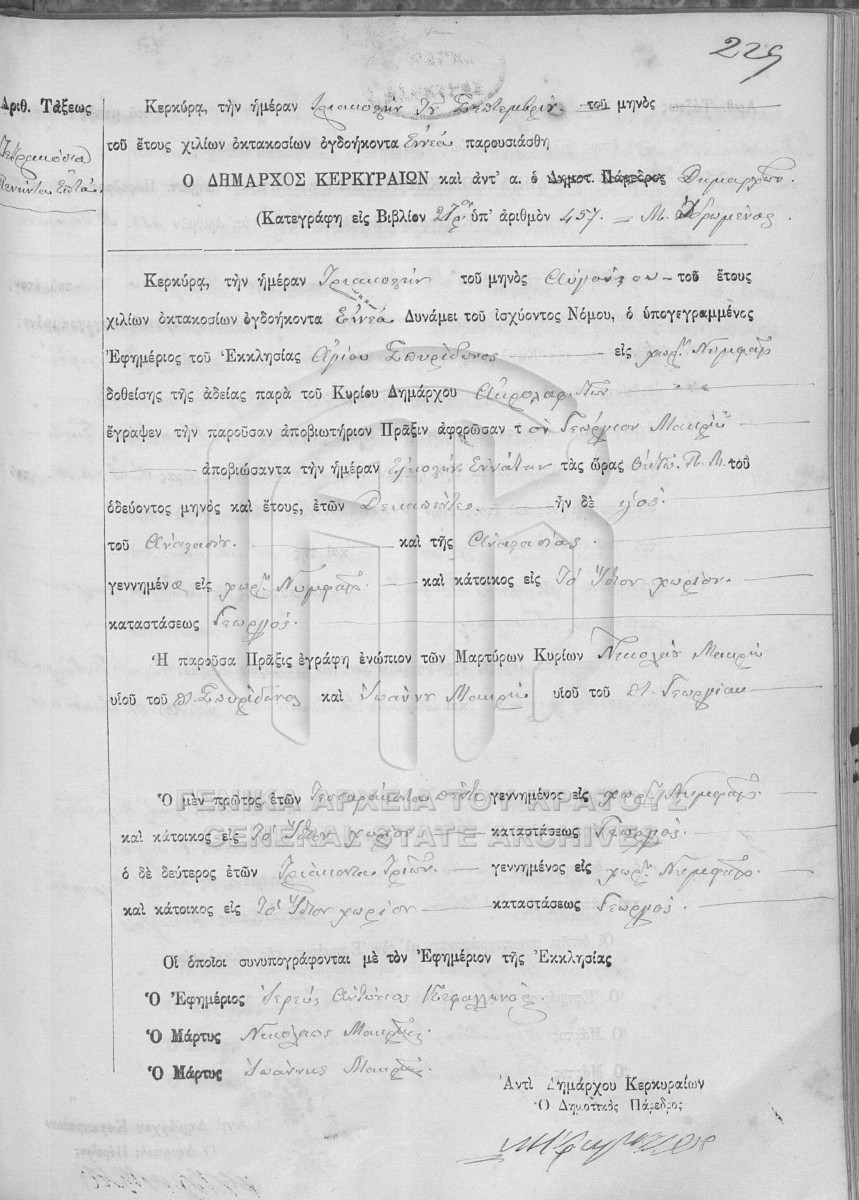 229
Ἀριθ. Τάξεως
Τετρακόσια
Πενῆντα Ἑπτά
Κερκύρᾳ, τὴν ἡμέραν Τριακοστὴν Σεπτεμβρίου τοῦ μηνὸς
τοῦ ἔτους χιλίων ὀκτακοσίων ὀγδοήκοντα Ἐννέα παρουσιάσθη
Ὁ ΔΗΜΑΡΧΟΣ ΚΕΡΚΥΡΑΙΩΝ καὶ ἀντ' α. ὁ Δημοτ. Πάρεδρος
(Κατεγράφη εἰς Βιβλίον ὑπ' ἀριθμὸν 457.
Κερκύρᾳ, τὴν ἡμέραν Τριακοστὴν τοῦ μηνὸς Αὐγούστου τοῦ ἔτους
χιλίων ὀκτακοσίων ὀγδοήκοντα Ἐννέα Δυνάμει τοῦ ἰσχύοντος Νόμου, ὁ ὑπογεγραμμένος
Ἐφημέριος τοῦ Ἐκκλησίας Ἁγίου Σπυρίδωνος εἰς χωρ. Νυμφαῖς
δοθείσης τῆς ἀδείας παρὰ τοῦ Κυρίου Δημάρχου
ἔγραψεν τὴν παροῦσαν ἀποβιωτήριον Πρᾶξιν ἀφορῶσαν τὸν Γεώργιον Μακρῆ
ἀποβιώσαντα τὴν ἡμέραν Εἰκοστὴν Ἐννάτην τὰς ὥρας Ὀκτὼ Π. Μ. τοῦ
ὁδεύοντος μηνὸς καὶ ἔτους, ἐτῶν Δεκαπέντε. ἦν δὲ υἱὸς
τοῦ Ἀναστασίου καὶ τῆς Ἀναστασίας.
γεννημένος εἰς χωρ. Νυμφαῖς. καὶ κάτοικος εἰς Τὸ Ἴδιον χωρίον.
καταστάσεως Γεωργός.
Ἡ παροῦσα Πρᾶξις ἐγράφη ἐνώπιον τῶν Μαρτύρων Κυρίων Νικολάου Μακρῆ
υἱοῦ τοῦ ποτ. Σπυρίδωνος καὶ Ἰωάννου Μακρῆ υἱοῦ τοῦ ποτ. Γεωργίου
Ὁ μὲν πρῶτος ἐτῶν γεννημένος εἰς χωρ. Νυμφαῖς.
καὶ κάτοικος εἰς Τὸ Ἴδιον χωρίον καταστάσεως Γεωργός.
ὁ δὲ δεύτερος ἐτῶν Τριάκοντα Τριῶν. γεννημένος εἰς χωρ. Νυμφαῖς.
καὶ κάτοικος εἰς Τὸ Ἴδιον χωρίον καταστάσεως Γεωργός.
Οἱ ὁποῖοι συνυπογράφονται μὲ τὸν Ἐφημέριον τῆς Ἐκκλησίας
Ὁ Ἐφημέριος Ἱερεὺς Ἀντώνιος Κεφαλληνός.
Ὁ Μάρτυς Νικόλαος Μακρῆς.
Ὁ Μάρτυς Ἰωάννης Μακρῆς.
Ἀντὶ Δημάρχου Κερκυραίων
Ὁ Δημοτικὸς Πάρεδρος
ΓΕΝΙΚΑ ΑΡΧΕΙΑ ΤΟΥ ΚΡΑΤΟΥΣ
GENERAL STATE ARCHIVES